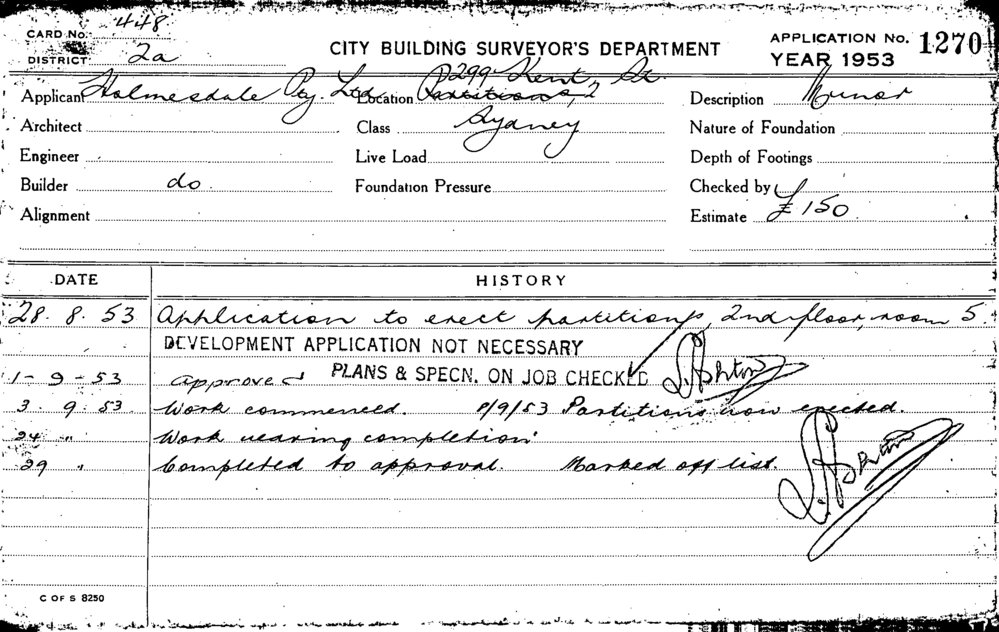 CARD No. 448
DISTRICT 2a
CITY BUILDING SURVEYOR'S DEPARTMENT
APPLICATION No. 1270
YEAR 1953
299 Kent St.
Applicant Holmesdale Pty. Ltd. Location Partitions, 2 Description Minor
Architect Class Sydney Nature of Foundation
Engineer Live Load Depth of Footings
Builder do Foundation Pressure Checked by
Alignment Estimate £150
DATE HISTORY
28. 8. 53 Application to erect partitions, 2nd floor, room 5.
DEVELOPMENT APPLICATION NOT NECESSARY
1-9-53 approved PLANS & SPECN. ON JOB CHECKED L. Ashton
3. 9. 53 Work commenced. 8/9/53 Partitions now erected.
24 " Work nearing completion
29 " Completed to approval. Marked off list. L. Ashton
C OF S 8250